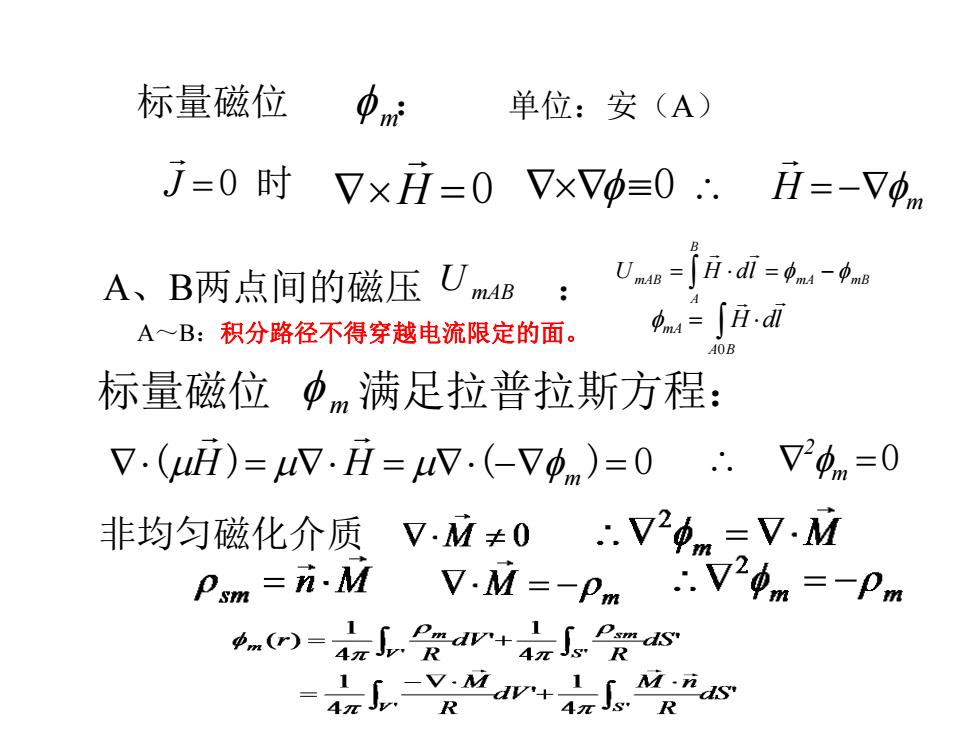 标量磁位 ϕₘ： 单位：安（A）
J⃗ =0 时 ∇×H⃗ =0 ∇×∇ϕ≡0 ∴ H⃗ =−∇ϕₘ
A、B两点间的磁压 U_{mAB} ： U_{mAB} = ∫_A^B H⃗ · dl⃗ = ϕ_{mA} − ϕ_{mB}
A～B：积分路径不得穿越电流限定的面。 ϕ_{mA} = ∫_{A0B} H⃗ · dl⃗
标量磁位 ϕₘ 满足拉普拉斯方程：
∇·(μH⃗)= μ∇·H⃗ = μ∇·(−∇ϕₘ)= 0 ∴ ∇²ϕₘ =0
非均匀磁化介质 ∇·M⃗ ≠ 0 ∴∇²ϕₘ = ∇·M⃗
ρ_{sm} = n⃗·M⃗ ∇·M⃗ = −ρₘ ∴∇²ϕₘ = −ρₘ
ϕₘ(r) = 1/4π ∫_{V'} ρₘ/R dV'+ 1/4π ∫_{S'} ρ_{sm}/R dS'
= 1/4π ∫_{V'} −∇·M⃗/R dV'+ 1/4π ∫_{S'} M⃗·n⃗/R dS'